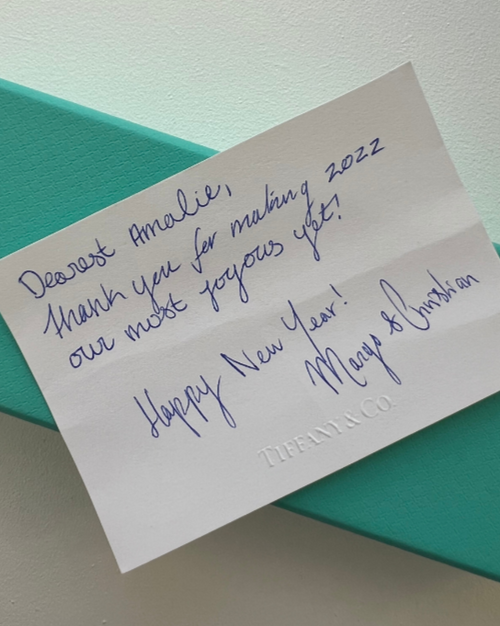 Dearest Amalie,
Thank you for making 2022
our most joyous yet!
Happy New Year!
Margo & Christian
TIFFANY & CO.